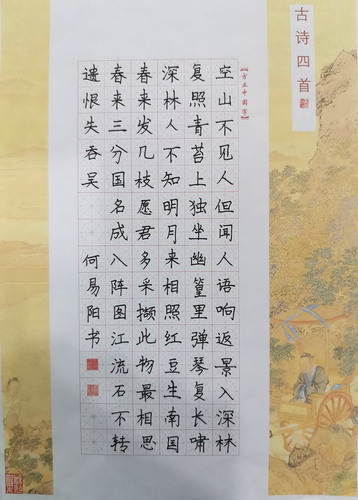 古诗四首
【方正中国字】
空山不见人但闻人语响返景入深林
复照青苔上独坐幽篁里弹琴复长啸
深林人不知明月来相照红豆生南国
春来发几枝愿君多采撷此物最相思
春来三分国名成入阵图江流石不转
遗恨失吞吴 何易阳书